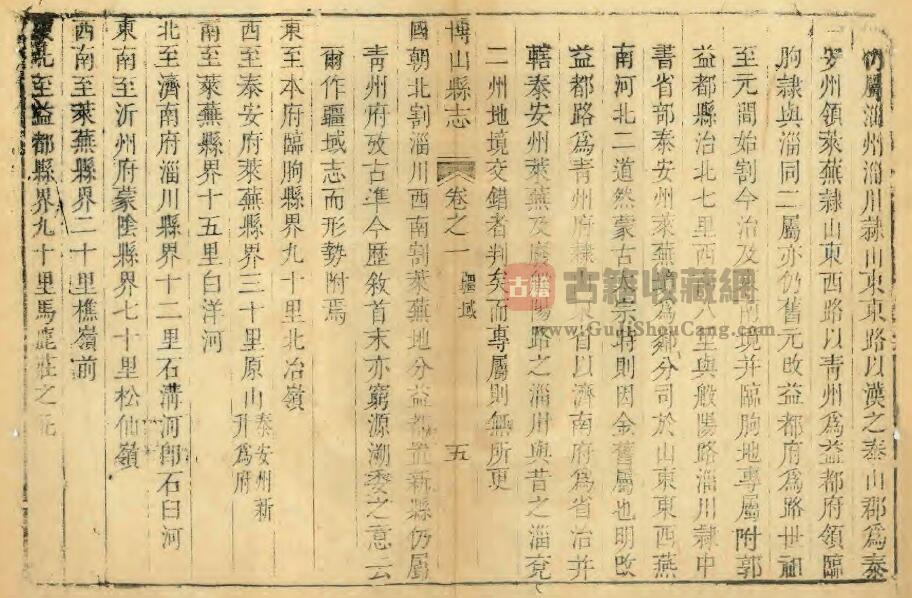 仍屬淄州淄川隸山東東路以漢之泰山郡爲泰
安州領萊蕪隸山東西路以青州爲益都府領臨
朐隸與淄同二屬亦仍舊元改益都府爲路世祖
至元間始割今治及南境并臨朐地專屬附郭
益都縣治北七里西八里與般陽路淄川隸中
書省部泰安州萊蕪爲鄰分司於山東東西燕
南河北二道然蒙古太宗時則因金舊屬也明改
益都路爲青州府隸東省以濟南府爲省治并
轄泰安州萊蕪及廢般陽路之淄川與昔之淄兗
二州地境交錯者判矣而專屬則無所更
博山縣志 卷之一 疆域 五
國朝北割淄川西南割萊蕪地分益都置新縣仍屬
青州府攷古準今歷敘首末亦窮源溯委之意云
爾作疆域志而形勢附焉
東至本府臨朐縣界九十里北冶嶺
西至泰安府萊蕪縣界三十里原山泰安州新升爲府
南至萊蕪縣界十五里白洋河
北至濟南府淄川縣界十二里石溝河卽石臼河
東南至沂州府蒙陰縣界七十里松仙嶺
西南至萊蕪縣界二十里樵嶺前
東北至益都縣界九十里馬鹿莊之北
古籍
古籍收藏網
www.GuJiShouCang.com